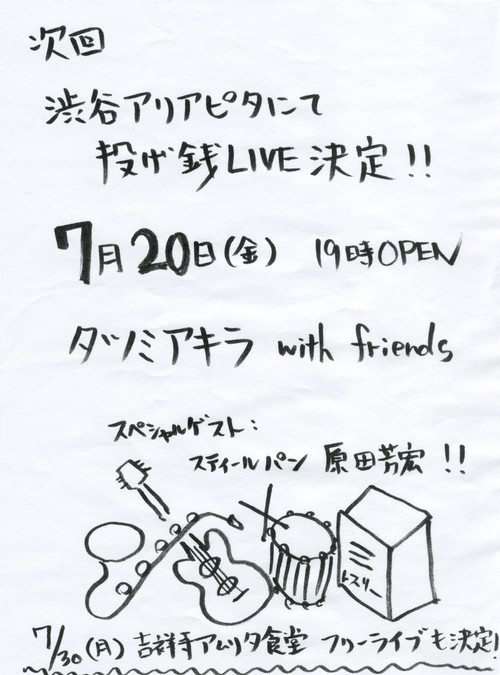 次回
渋谷アリアピタにて
投げ銭LIVE決定!!
7月20日(金) 19時OPEN
タツミアキラ with friends
スペシャルゲスト:
スティールパン 原田芳宏!!
トスリー
7/30(月) 吉祥寺アムリタ食堂 フリーライブも決定!